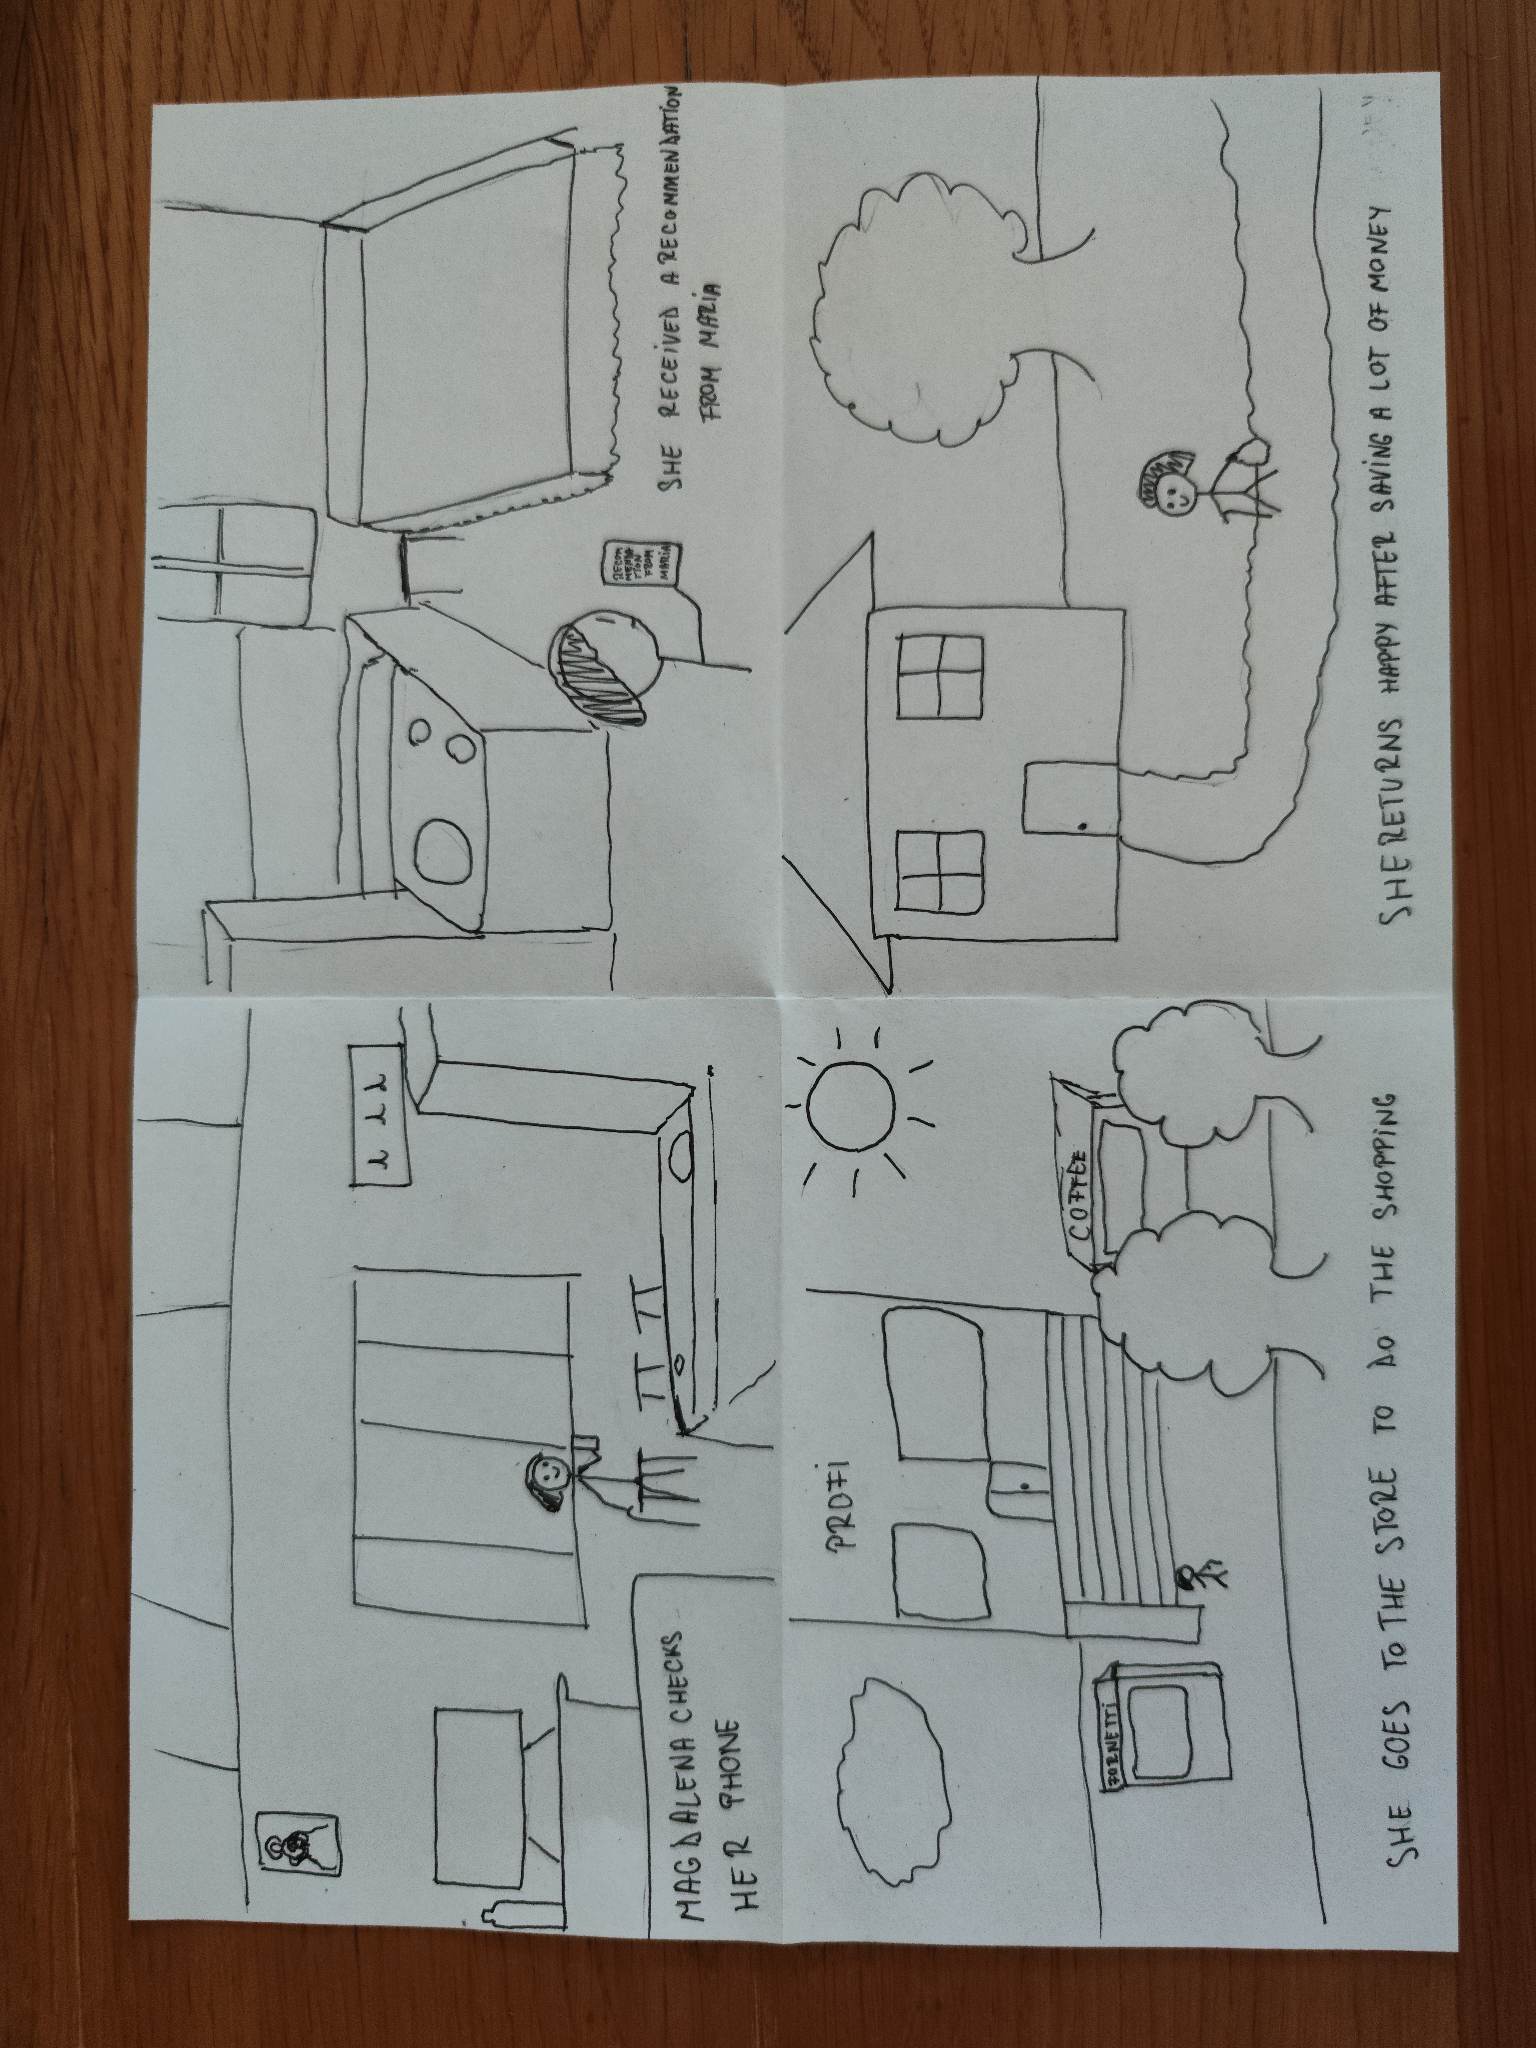 MAGDALENA CHECKS
HER PHONE
RECOM
MENDA
TION
FROM
MARIA
SHE RECEIVED A RECOMMENDATION
FROM MARIA
PROFI
COFFEE
FORNETTI
SHE GOES TO THE STORE TO DO THE SHOPPING
SHE RETURNS HAPPY AFTER SAVING A LOT OF MONEY